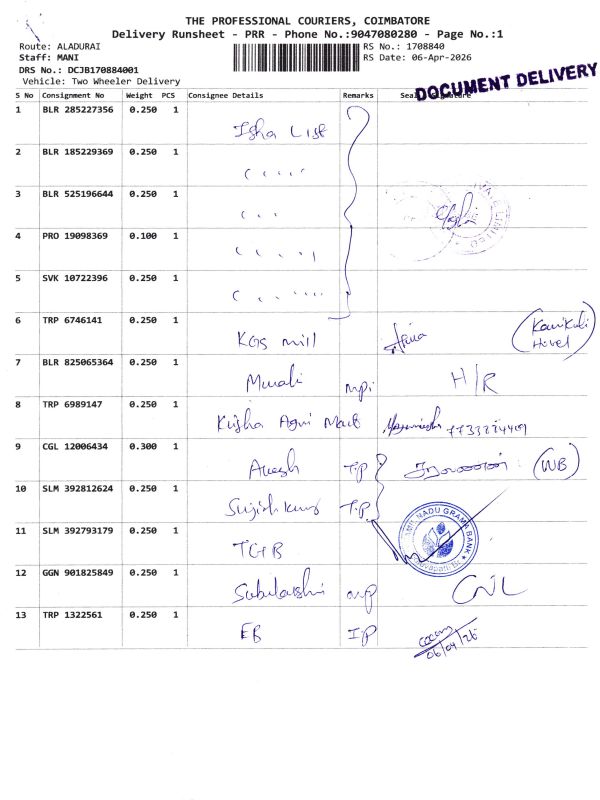 THE PROFESSIONAL COURIERS, COIMBATORE
Delivery Runsheet - PRR - Phone No.:9047080280 - Page No.:1
Route: ALADURAI RS No.: 1708840
Staff: MANI RS Date: 06-Apr-2026
DRS No.: DCJB170884001
Vehicle: Two Wheeler Delivery
DOCUMENT DELIVERY
S No Consignment No Weight PCS Consignee Details Remarks
1 BLR 285227356 0.250 1
Isha List
2 BLR 185229369 0.250 1
3 BLR 525196644 0.250 1
4 PRO 19098369 0.100 1
5 SVK 10722396 0.250 1
6 TRP 6746141 0.250 1
KGS mill
7 BLR 825065364 0.250 1
Murali H/R
8 TRP 6989147 0.250 1
9 CGL 12006434 0.300 1
T.P (WB)
10 SLM 392812624 0.250 1
T.P
11 SLM 392793179 0.250 1
TGB
TAMIL NADU GRAMA BANK
12 GGN 901825849 0.250 1
13 TRP 1322561 0.250 1
EB IP
06/04/26